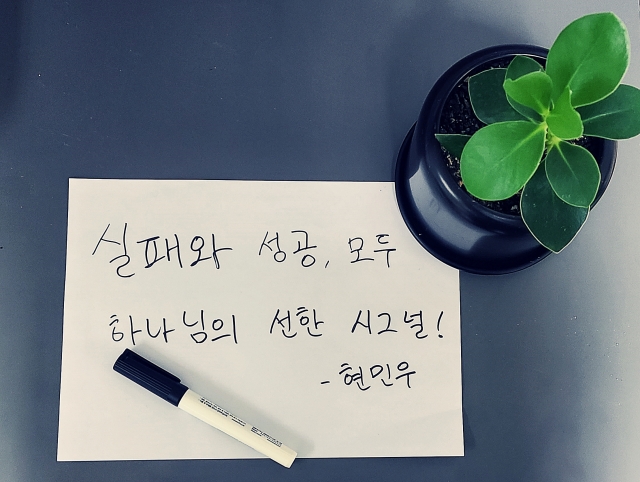 실패와 성공, 모두
하나님의 선한 시그널!
- 현민우